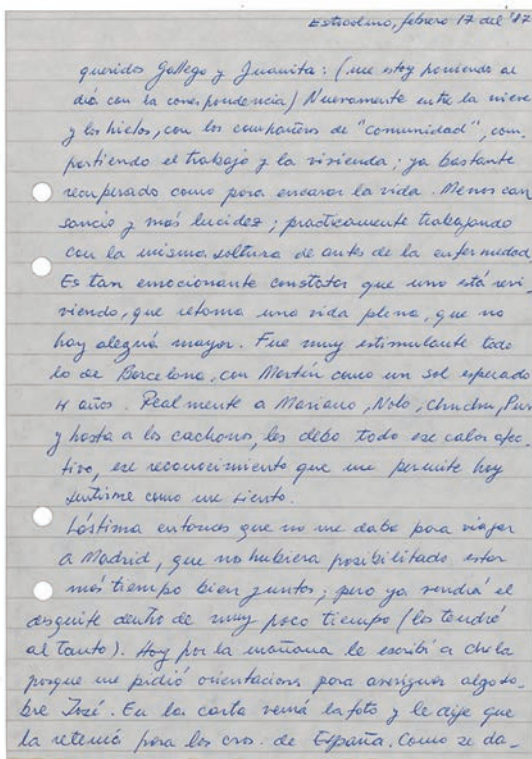 Estocolmo, febrero 17 del '87
queridos Gallego y Juanita: (me estoy poniendo al
día con la correspondencia) Nuevamente entre la nieve
y los hielos, con los compañeros de "comunidad", com-
partiendo el trabajo y la vivienda; ya bastante
recuperado como para encarar la vida. Menos can
sancio y más lucidez; practicamente trabajando
con la misma soltura de antes de la enfermedad.
Es tan emocionante constatar que uno está revi-
viendo, que retoma una vida plena, que no
hay alegría mayor. Fue muy estimulante todo
lo de Barcelona, con Martín como un sol esperado
4 años. Realmente a Mariano, Nolo, Chuchu, Puri
y hasta a los cachorros, les debo todo ese calor afec-
tivo, ese reconocimiento que me permite hoy
sentirme como me siento.
Lástima entonces que no me daba para viajar
a Madrid, que nos hubiera posibilitado estar
más tiempo bien juntos; pero ya vendrá el
desquite dentro de muy poco tiempo (los tendré
al tanto). Hoy por la mañana le escribí a chola
porque me pidió orientacions para averiguar algo so-
bre José. En la carta venía la foto y le dije que
la retenía para los cros. de España. Como se da-